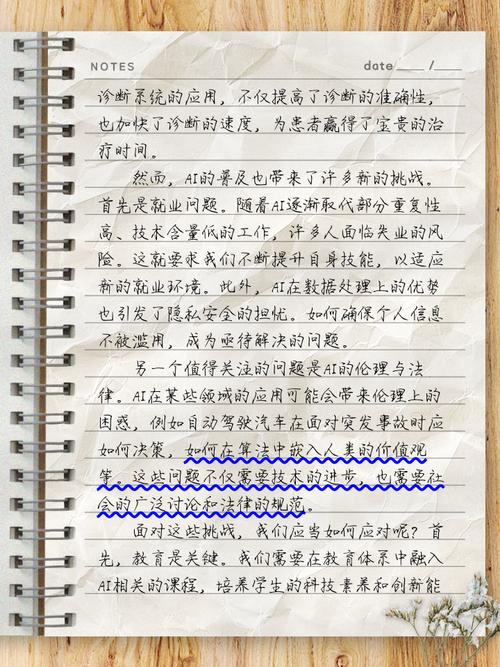 NOTES date ____ / ____
诊断系统的应用，不仅提高了诊断的准确性，
也加快了诊断的速度，为患者赢得了宝贵的治
疗时间。
然而，AI的普及也带来了许多新的挑战。
首先是就业问题。随着AI逐渐取代部分重复性
高、技术含量低的工作，许多人面临失业的风
险。这就要求我们不断提升自身技能，以适应
新的就业环境。此外，AI在数据处理上的优势
也引发了隐私安全的担忧。如何确保个人信息
不被滥用，成为亟待解决的问题。
另一个值得关注的问题是AI的伦理与法
律。AI在某些领域的应用可能会带来伦理上的
困惑，例如自动驾驶汽车在面对突发事故时应
如何决策，如何在算法中嵌入人类的价值观
等。这些问题不仅需要技术的进步，也需要社
会的广泛讨论和法律的规范。
面对这些挑战，我们应当如何应对呢？首
先，教育是关键。我们需要在教育体系中融入
AI相关的课程，培养学生的科技素养和创新能